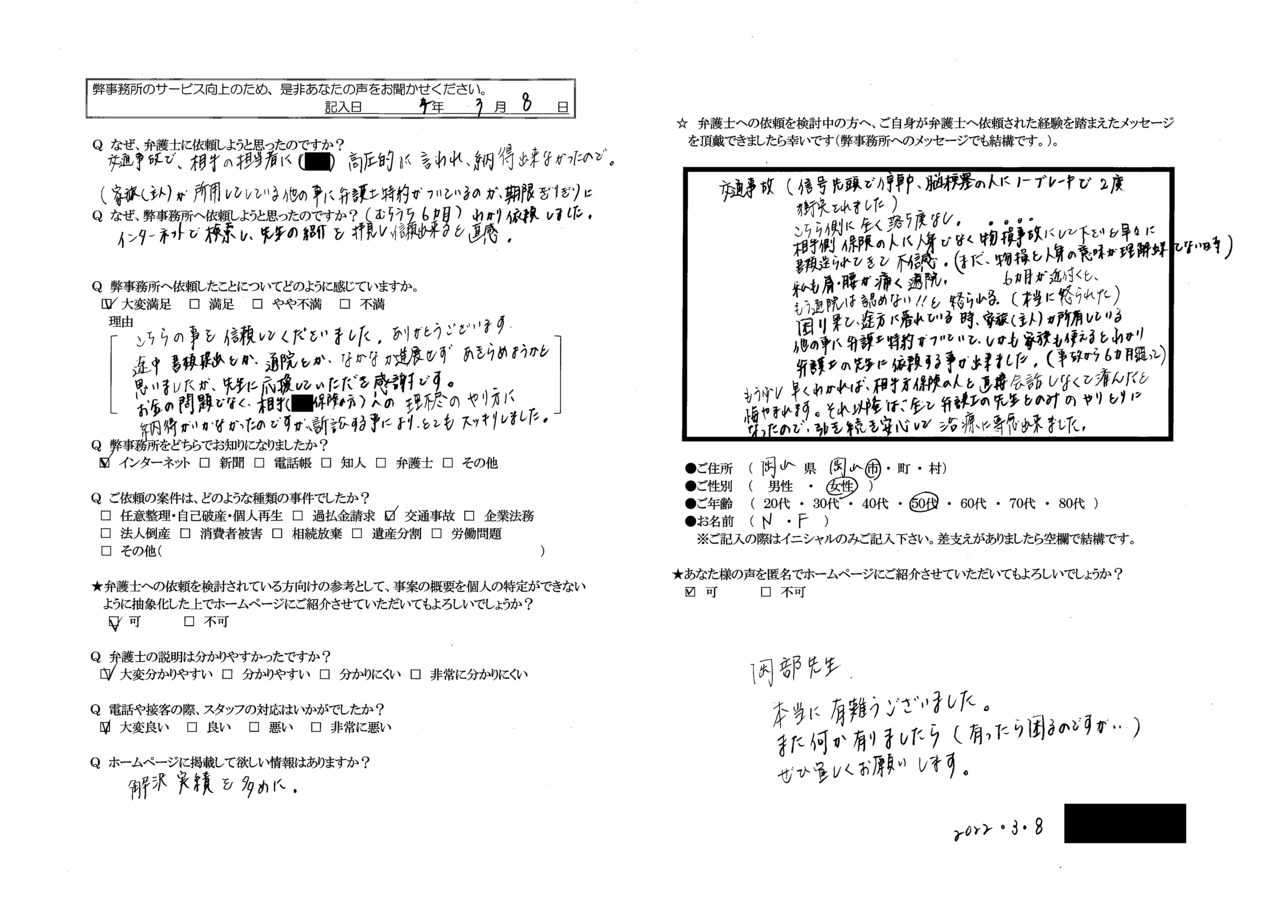 弊事務所のサービス向上のため、是非あなたの声をお聞かせください。
記入日 4年 3月 8日
Q なぜ、弁護士に依頼しようと思ったのですか?
交通事故で、相手の担当者に( )高圧的に言われ、納得出来なかったので。
(家族(主人)が所用してしている他の車に弁護士特約がついているのが、期限ぎりぎりに
Q なぜ、弊事務所へ依頼しようと思ったのですか?(むちうち6カ月)わかり依頼しました。
インターネットで検索し、先生の紹介を拝見し信頼出来ると直感。
Q 弊事務所へ依頼したことについてどのように感じていますか。
☑ 大変満足 □ 満足 □ やや不満 □ 不満
理由
こちらの事を信頼してくださいました。ありがとうございます。
途中書類提出とか、通院とか、なかなか進展せず あきらめようかと
思いましたが、先生に応援していただき感謝です。
お金の問題でなく、相手( 保険の方)への 理不尽のやり方に
納得がいかなかったのですが、訴訟する事により、とてもスッキリしました。
Q 弊事務所をどちらでお知りになりましたか?
☑ インターネット □ 新聞 □ 電話帳 □ 知人 □ 弁護士 □ その他
Q ご依頼の案件は、どのような種類の事件でしたか?
□ 任意整理・自己破産・個人再生 □ 過払金請求 ☑ 交通事故 □ 企業法務
□ 法人倒産 □ 消費者被害 □ 相続放棄 □ 遺産分割 □ 労働問題
□ その他( )
★弁護士への依頼を検討されている方向けの参考として、事案の概要を個人の特定ができない
ように抽象化した上でホームページにご紹介させていただいてもよろしいでしょうか?
☑ 可 □ 不可
Q 弁護士の説明は分かりやすかったですか?
☑ 大変分かりやすい □ 分かりやすい □ 分かりにくい □ 非常に分かりにくい
Q 電話や接客の際、スタッフの対応はいかがでしたか?
☑ 大変良い □ 良い □ 悪い □ 非常に悪い
Q ホームページに掲載して欲しい情報はありますか?
解決実績を多めに。
☆ 弁護士への依頼を検討中の方へ、ご自身が弁護士へ依頼された経験を踏まえたメッセージ
を頂戴できましたら幸いです(弊事務所へのメッセージでも結構です。)。
交通事故(信号先頭で停車中、脳梗塞の人にノーブレーキで2度
衝突されました)
こちら側に全く落ち度なし。
相手側保険の人に人身でなく物損事故にして下さいと早々に
書類送られてきて不信感。(まだ、物損と人身の意味が理解出来てない時)
私も肩・腰が痛く通院。 6カ月が近付くと、
もう通院は認めない!!と怒られる。(本当に怒られた)
困り果て、途方に暮れている時、家族(主人)が所用している
他の車に弁護士特約がついていて、しかも家族も使えるとわかり
弁護士の先生に依頼する事が出来ました。(事故から6カ月経って)
もう少し早くわかれば、相手方保険の人と直接会話しなくて済んだと
悔やまれます。それ以降は、全て弁護士の先生とのみのやりとりに
なったので、引き続き安心して治療に専念出来ました。
●ご住所 ( 岡山 県 岡山 市・町・村)
●ご性別 ( 男性 ・ 女性 )
●ご年齢 ( 20代 ・ 30代 ・ 40代 ・ 50代 ・ 60代 ・ 70代 ・ 80代 )
●お名前 ( N ・ F )
※ご記入の際はイニシャルのみご記入下さい。差支えがありましたら空欄で結構です。
★あなた様の声を匿名でホームページにご紹介させていただいてもよろしいでしょうか?
☑ 可 □ 不可
岡部先生
本当に有難うございました。
また何か有りましたら(有ったら困るのですが‥)
ぜひ宜しくお願いします。
2022.3.8